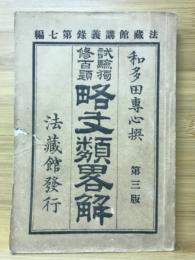 法藏館講義錄第七編
和多田專心撰
第三版
試驗獨修百題
略文類畧解
法藏館發行